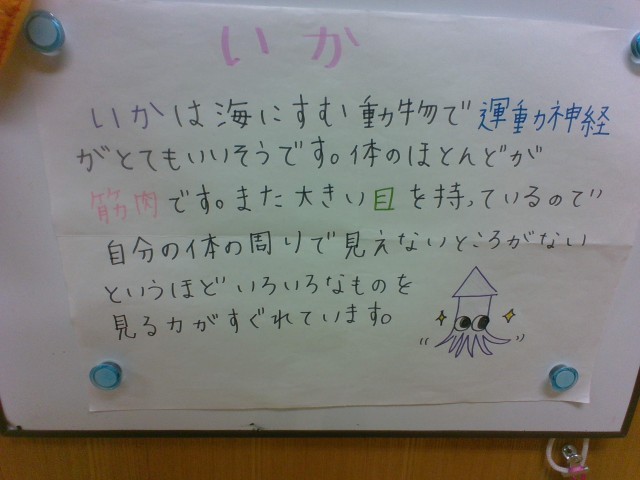 いか
いかは海にすむ動物で運動神経
がとてもいいそうです。体のほとんどが
筋肉です。また大きい目を持っているので
自分の体の周りで見えないところがない
というほどいろいろなものを
見る力がすぐれています。